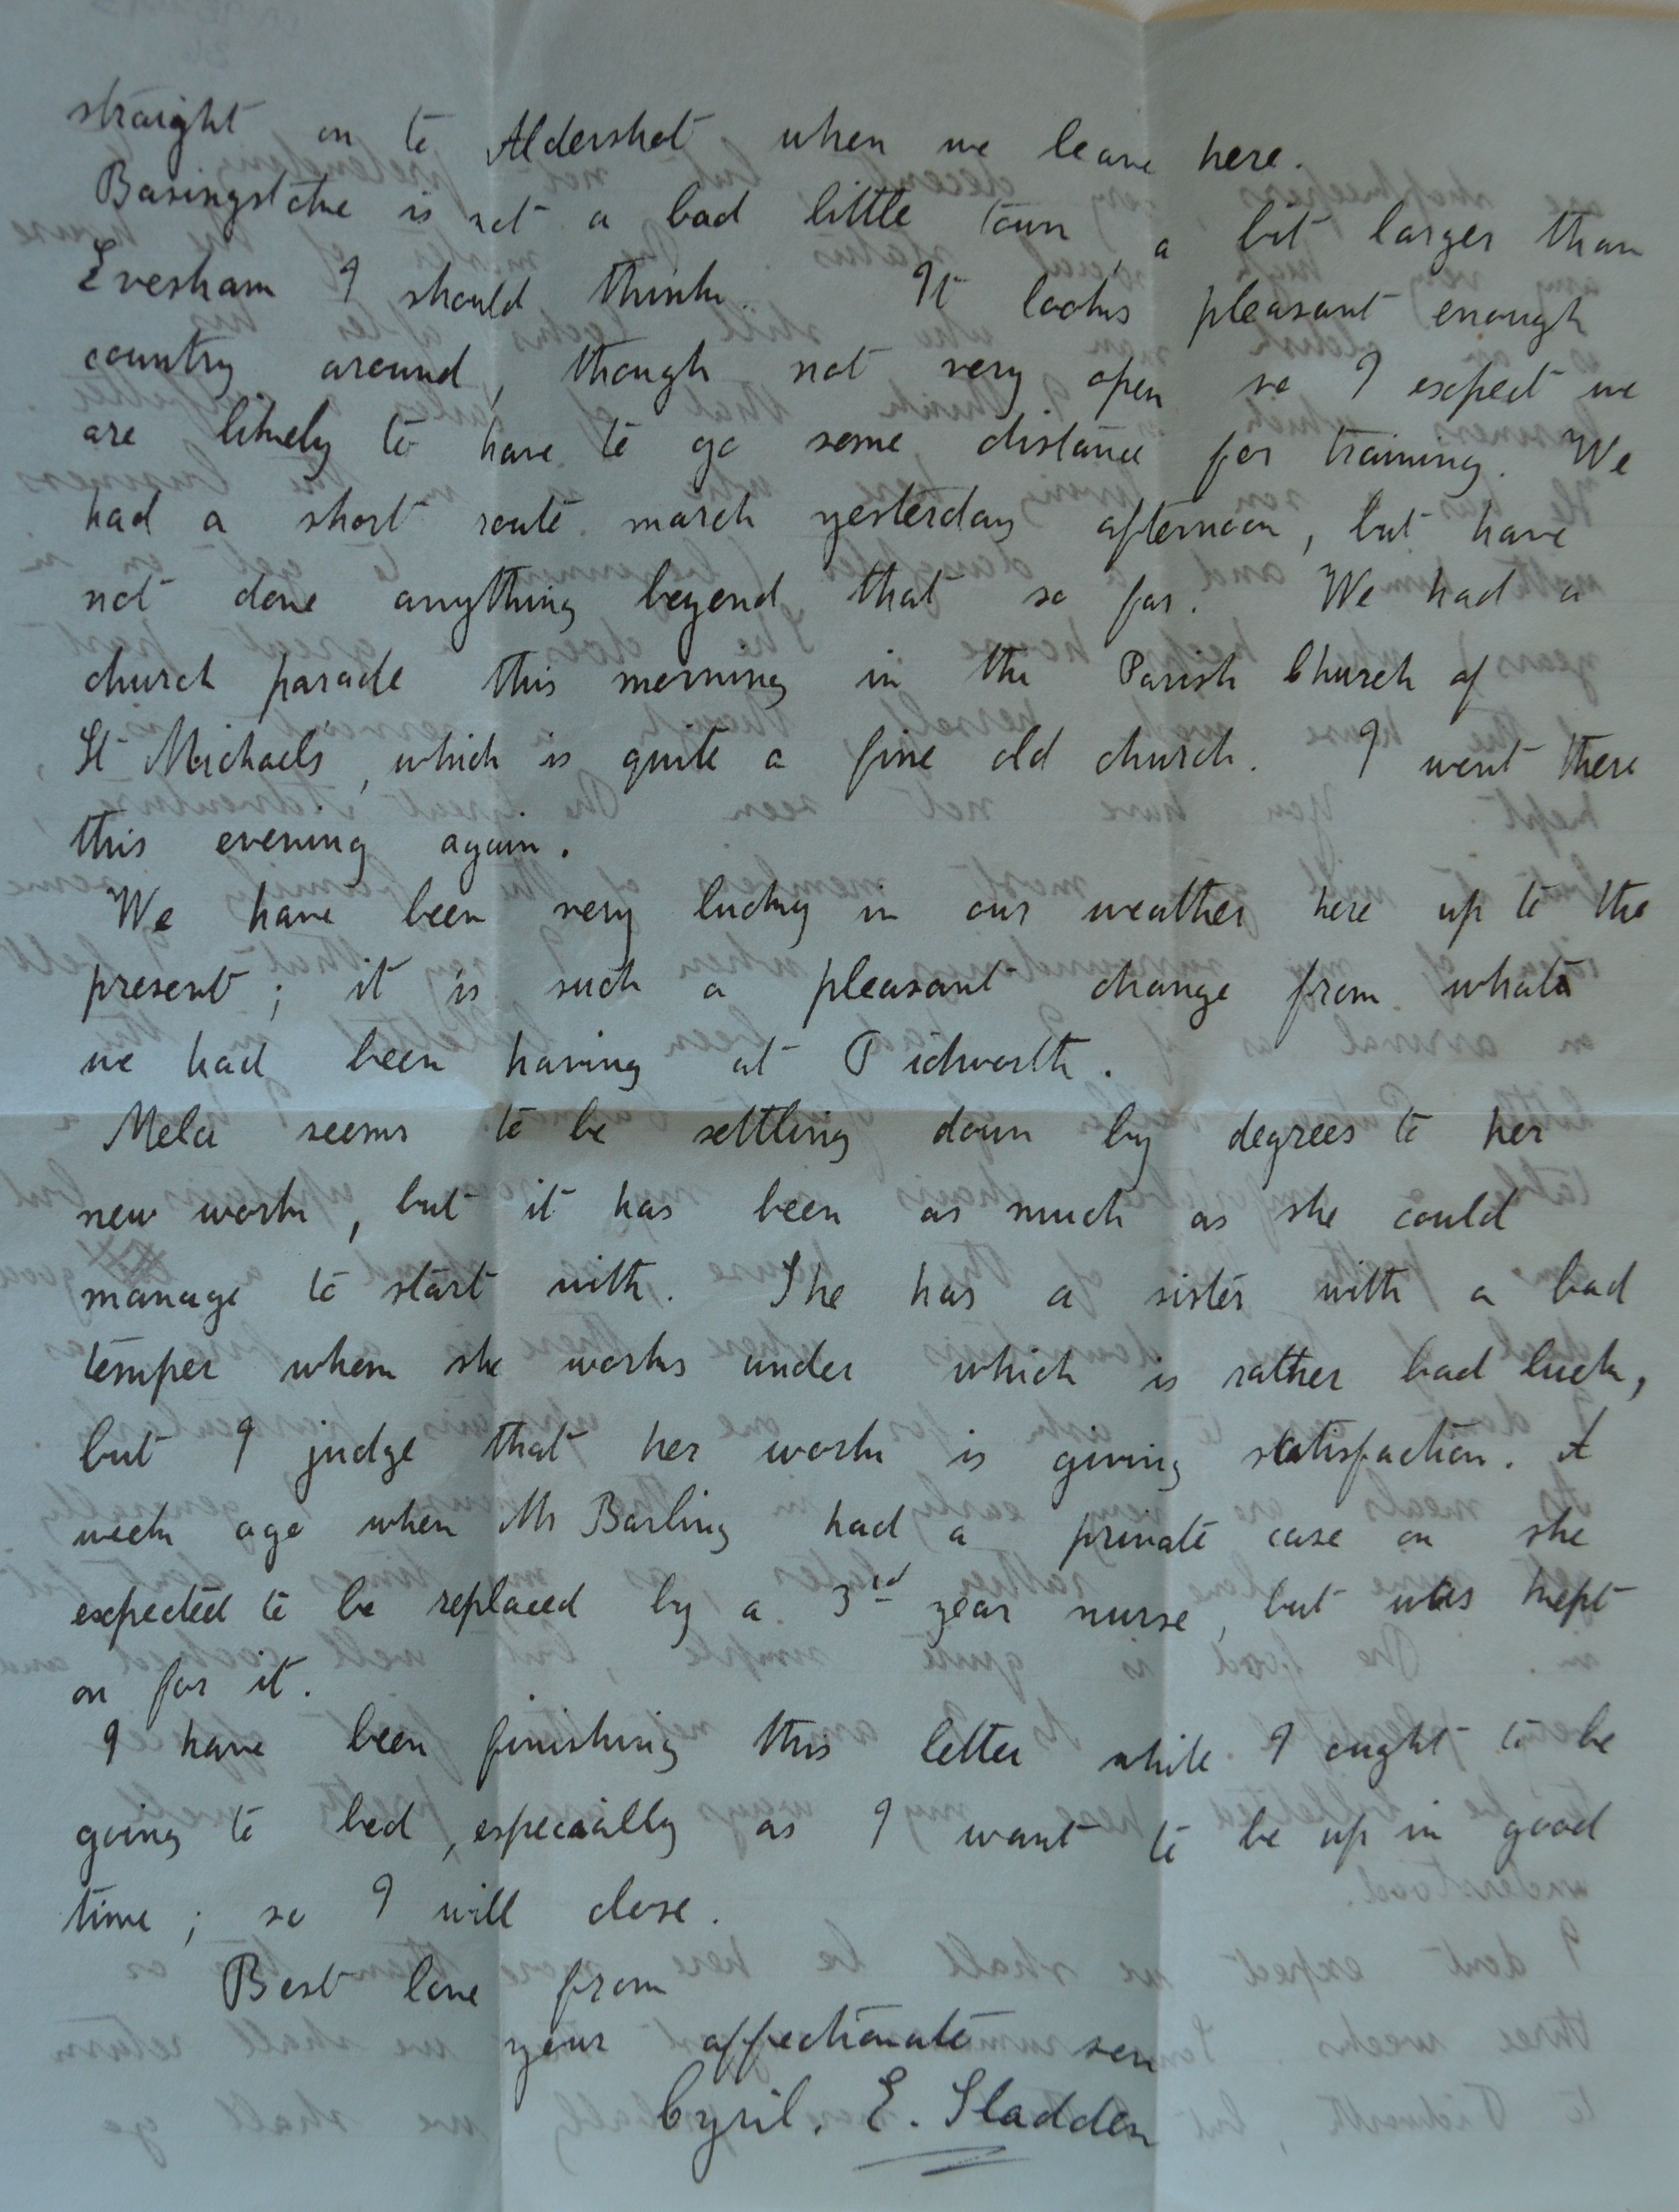 straight on to Aldershot when we leave here.
Basingstoke is not a bad little town, a bit larger than
Evesham I should think. It looks pleasant enough
country around, though not very open so I expect we
are likely to have to go some distance for training. We
had a short route march yesterday afternoon, but have
not done anything beyond that so far. We had a
church parade this morning in the Parish Church of
St Michaels, which is quite a fine old church. I went there
this evening again.
We have been very lucky in our weather here up to the
present; it is such a pleasant change from what
we had been having at Tidworth.
Mela seems to be settling down by degrees to her
new work, but it has been as much as she could
manage to start with. She has a sister with a bad
temper whom she works under which is rather bad luck,
but I judge that her work is giving satisfaction. A
week ago when Mr Barling had a private case on she
expected to be replaced by a 3rd year nurse, but was kept
on for it.
I have been finishing this letter while I ought to be
going to bed, especially as I want to be up in good
time; so I will close.
Best love from
your affectionate son
Cyril. E. Sladden